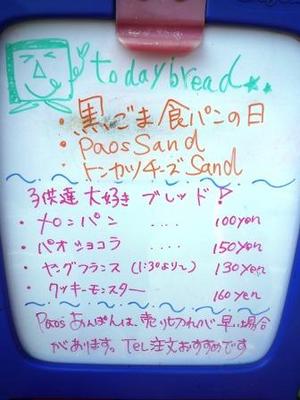 today bread
・黒ごま食パンの日
・PaosSand
・トンカツチーズSand
子供達大好きブレッド!
・メロンパン ････ 100yen
・パオショコラ ････ 150yen
・ヤングフランス (1:30より〜) 130yen
・クッキーモンスター 160yen
Paosあんぱんは、売り切れが早い場合
があります。Tel注文おすすめです